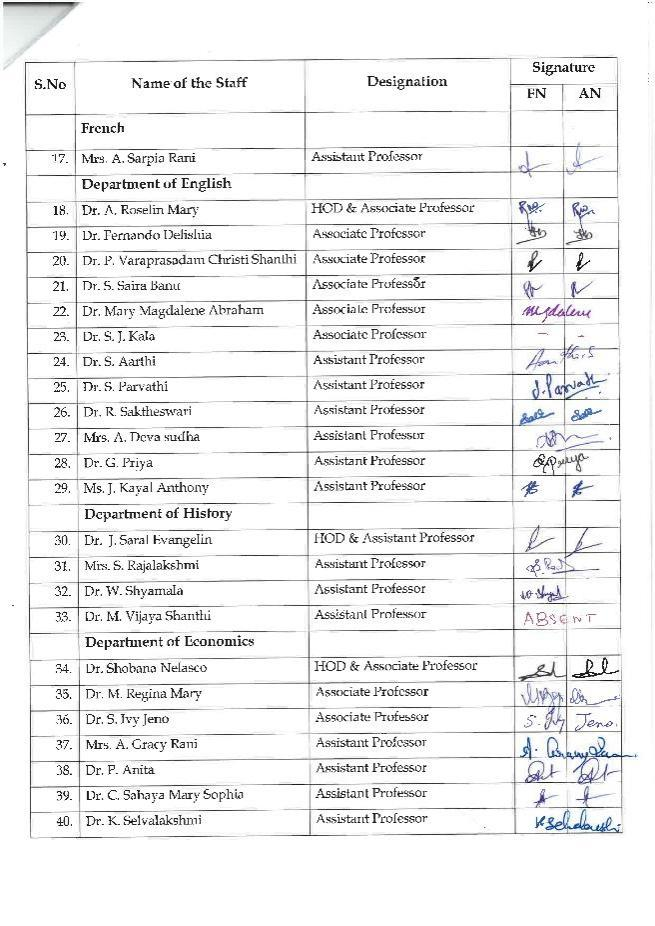 S.No Name of the Staff Designation Signature
FN AN
French
17. Mrs. A. Sarpia Rani Assistant Professor
Department of English
18. Dr. A. Roselin Mary HOD & Associate Professor
19. Dr. Fernando Delishia Associate Professor
20. Dr. P. Varaprasadam Christi Shanthi Associate Professor
21. Dr. S. Saira Banu Associate Professor
22. Dr. Mary Magdalene Abraham Associate Professor Magdalene
23. Dr. S. J. Kala Associate Professor - -
24. Dr. S. Aarthi Assistant Professor Aarthi.S
25. Dr. S. Parvathi Assistant Professor S. Parvathi
26. Dr. R. Saktheswari Assistant Professor
27. Mrs. A. Deva sudha Assistant Professor
28. Dr. G. Priya Assistant Professor G. Priya
29. Ms. J. Kayal Anthony Assistant Professor
Department of History
30. Dr. J. Saral Evangelin HOD & Assistant Professor
31. Mrs. S. Rajalakshmi Assistant Professor
32. Dr. W. Shyamala Assistant Professor
33. Dr. M. Vijaya Shanthi Assistant Professor ABSENT
Department of Economics
34. Dr. Shobana Nelasco HOD & Associate Professor
35. Dr. M. Regina Mary Associate Professor
36. Dr. S. Ivy Jeno Associate Professor S. Ivy Jeno.
37. Mrs. A. Gracy Rani Assistant Professor
38. Dr. P. Anita Assistant Professor
39. Dr. C. Sahaya Mary Sophia Assistant Professor
40. Dr. K. Selvalakshmi Assistant Professor